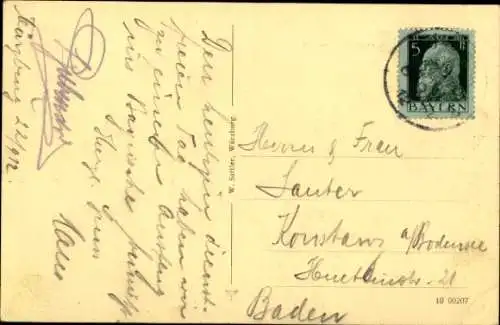 Würzburg 22/ 912
Den heutigen dienst-
freien Tag haben wir
zu einem Ausflug
ins Bayrische
Herzl. Gruss
Hans
W. Sattler, Würzburg
5 Pf
BAYERN
Herrn & Frau
Sauter
Konstanz a/Bodensee
Huetlinstr. 21
Baden
10 00207